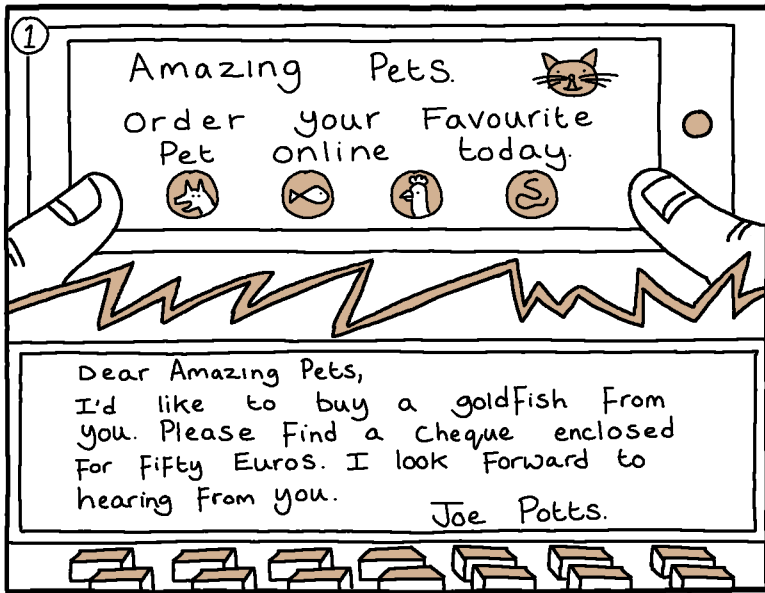 1
Amazing Pets.
Order your Favourite
Pet online today.
Dear Amazing Pets,
I'd like to buy a goldfish from
you. Please find a cheque enclosed
for fifty Euros. I look forward to
hearing from you.
Joe Potts.